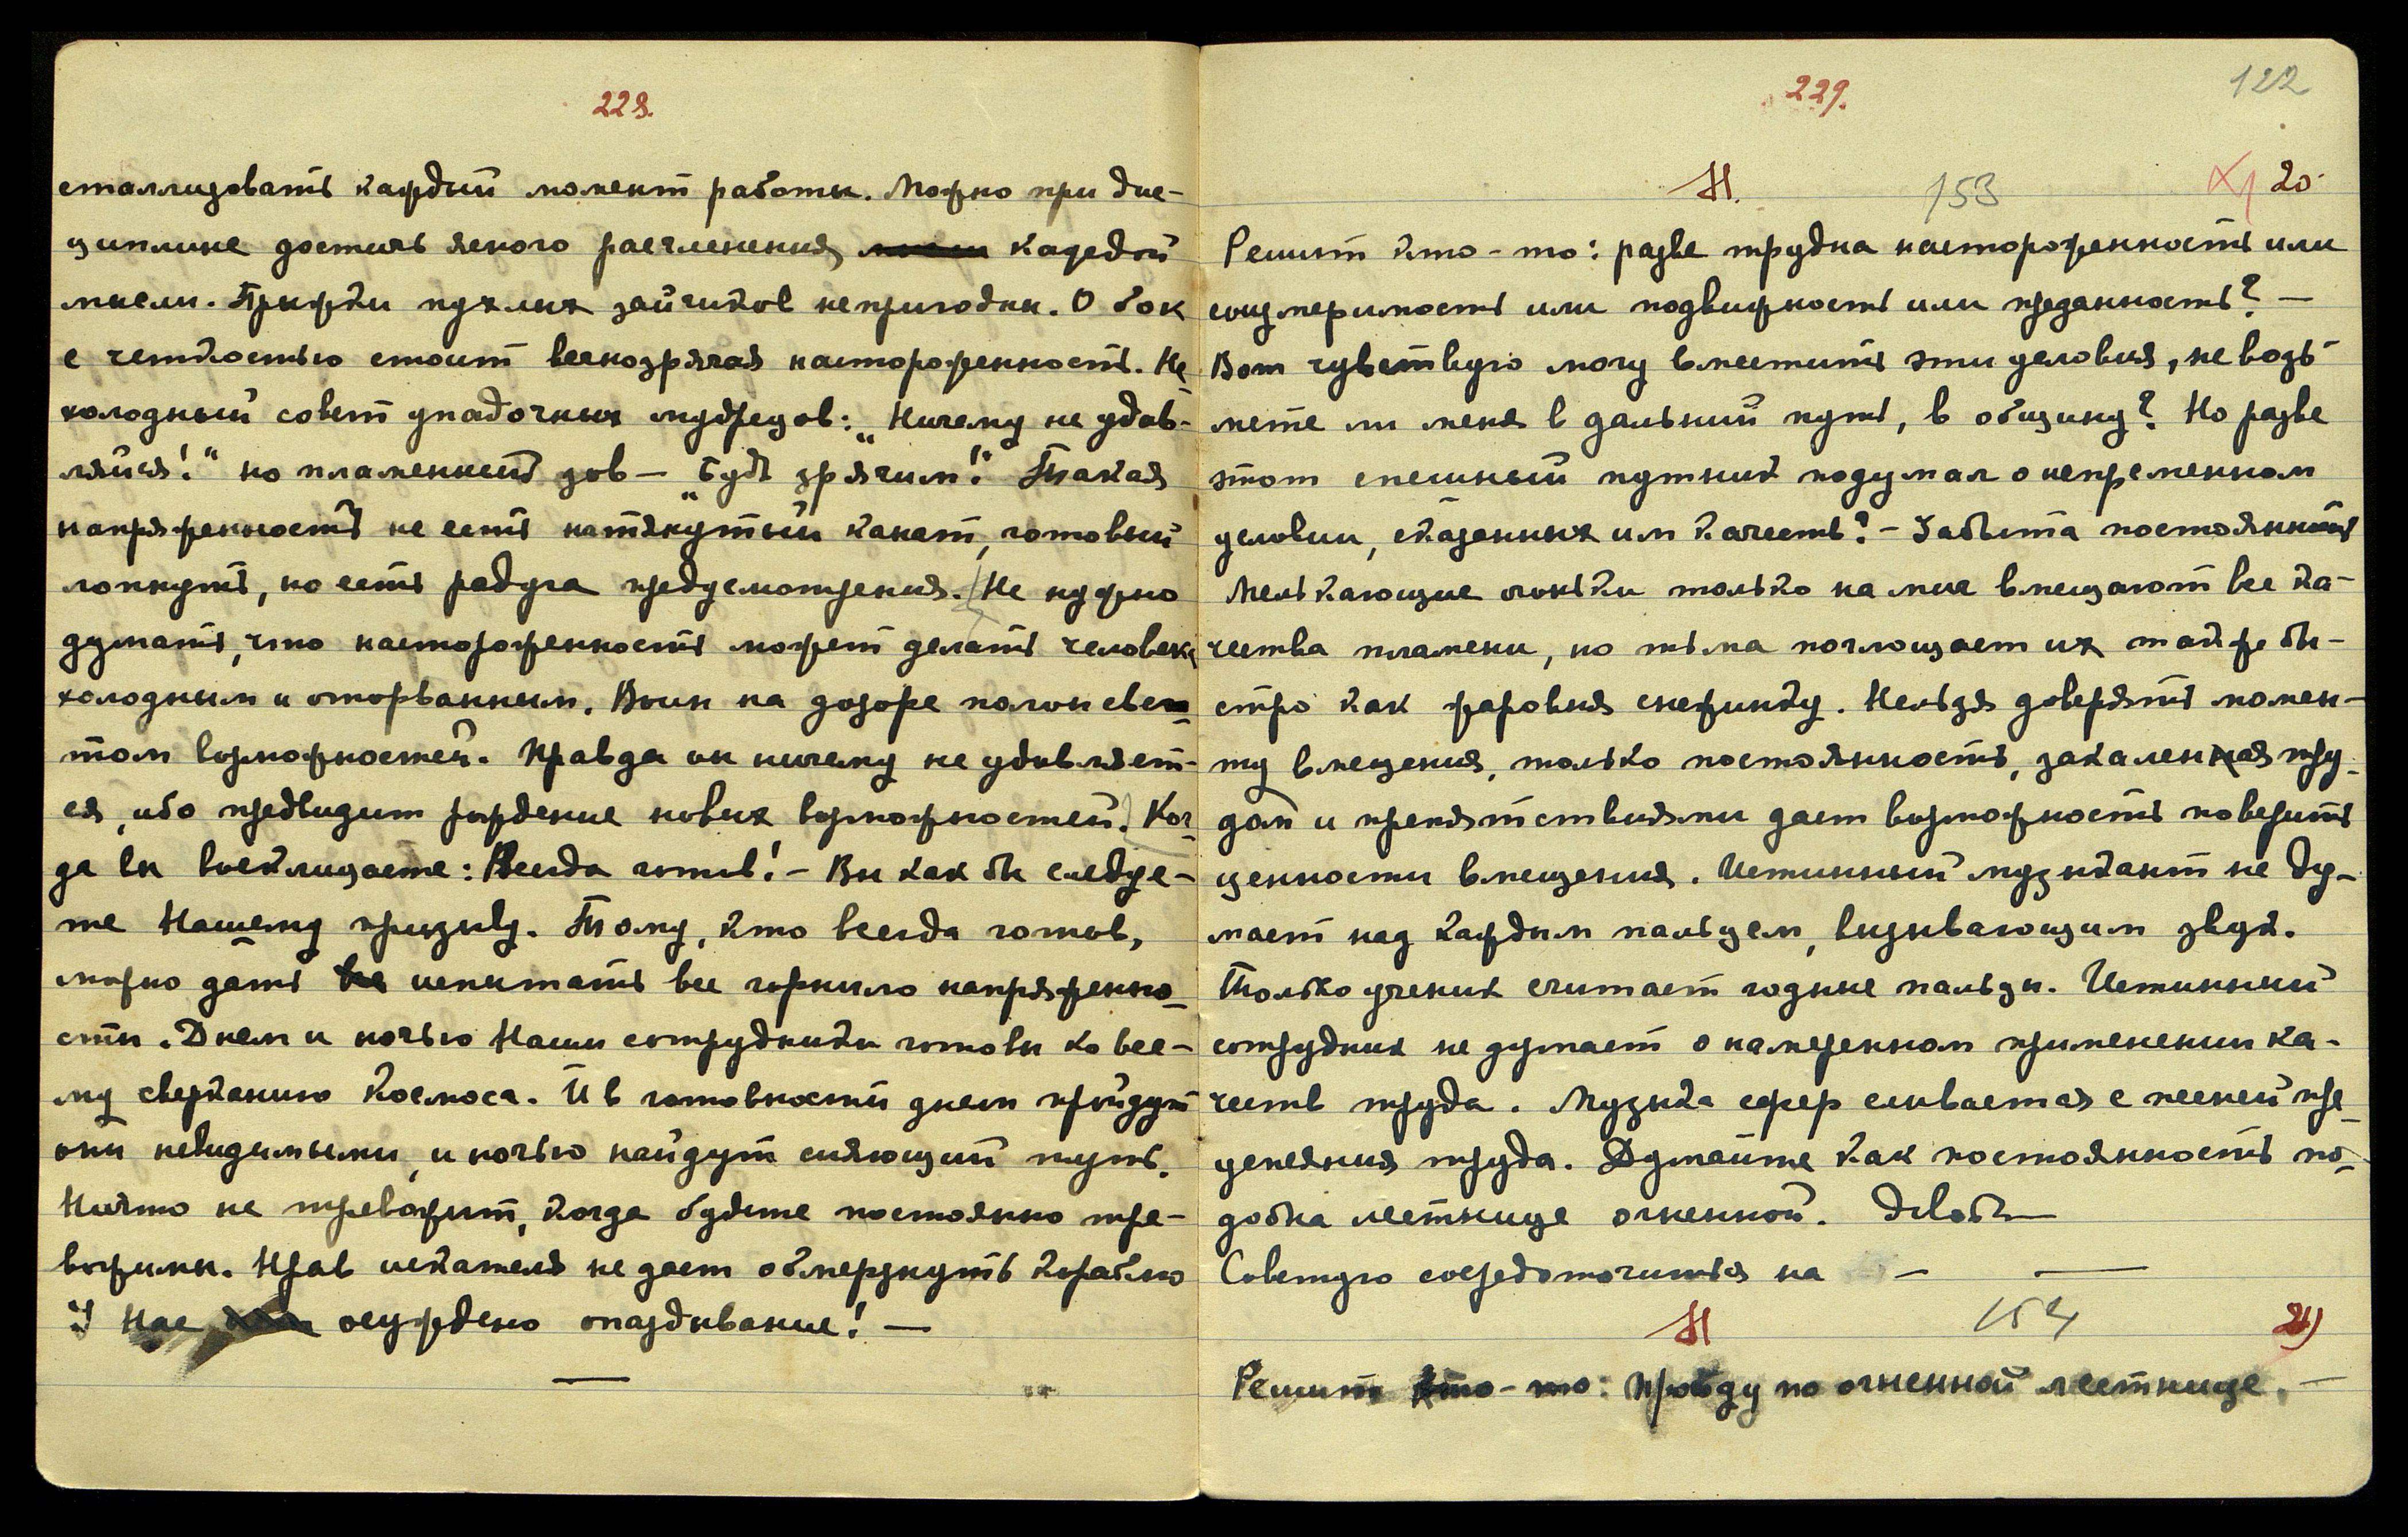 228.
сталлизовать каждый момент работы. Можно при дис-
циплине достичь ясного расчленения каждой
мысли. Прыжки пухлых зайчиков непригодны. О бок
с четкостью стоит яснозрячая настороженность. Не
холодный совет упадочных мудрецов: „Ничему не удив-
ляйся!“ но пламенный зов — „Будь зрячим!“ Такая
напряженность не есть натянутый канат, готовый
лопнуть, но есть радуга предусмотрения. Не нужно
думать, что настороженность может делать человека
холодным и оторванным. Воин на дозоре полон све-
том возможностей. Правда он ничему не удивляет-
ся, ибо предвидит рождение новых возможностей. Ког-
да вы восклицаете: Всегда готов! — Вы как бы следуе-
те Нашему призыву. Тому, кто всегда готов,
можно дать испытать все горнило напряженно-
сти. Днем и ночью Наши сотрудники готовы ко все-
му сверканию Космоса. И в готовности днем пройдут
они невидимыми, и ночью найдут сияющий путь.
Ничто не тревожит, когда будете постоянно тре-
вожимы. Нрав искателя не дает обмерзнуть кораблю
У Нас осуждено опаздывание! —
229.
122
Н.
153
XI 20.
Решит кто-то: разве трудна настороженность или
соизмеримость или подвижность или преданность? —
Вот чувствую могу вместить эти условия, не возь-
мете ли меня в дальний путь, в общину? Но разве
этот спешный путник подумал о непременном
условии, сказанных им качеств? – Забыта постоянность
Мелькающие огоньки только на миг вмещают все ка-
чества пламени, но тьма поглощает их также бы-
стро как жаровня снежинку. Нельзя доверять момен-
ту вмещения, только постоянность, закаленная тру-
дом и препятствиями дает возможность поверить
ценности вмещения. Истинный музыкант не ду-
мает над каждым пальцем, вызывающим звук.
Только ученик считает годные пальцы. Истинный
сотрудник не думает о намеренном применении ка-
честв труда. Музыка сфер сливается с песней пре-
успеяния труда. Думайте как постоянность по-
добна лестнице огненной.
Советую сосредоточиться на —
Н
154
21)
Решит кто-то: Пройду по огненной лестнице. —